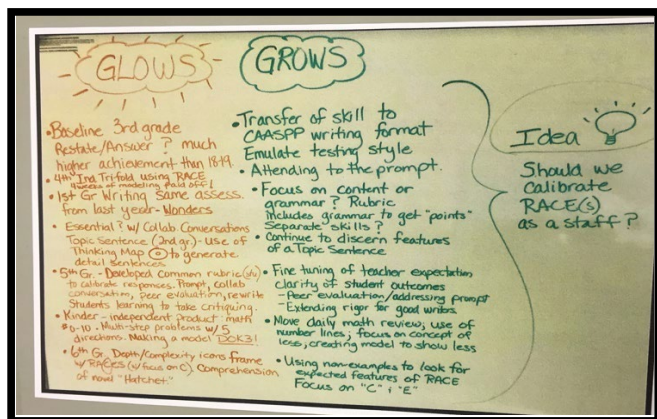 GLOWS
•Baseline 3rd grade
Restate/Answer ? much
higher achievement than 18-19.
•4th Ind Trifold using RACE
4 weeks of modeling paid off!
•1st Gr Writing same assess.
from last year-Wonders
• Essential ? w/ Collab Conversations
Topic Sentence (2nd gr.) - Use of
Thinking Map to generate
detail sentences.
•5th Gr. - Developed common rubric
to calibrate responses. Prompt, collab
conversation, peer evaluation, rewrite
Students learning to take critiquing.
•Kinder - independent product: math
#0-10. Multi-step problems w/ 5
directions. Making a model DOK3!
•6th Gr. Depth/Complexity icons frame
w/ RACEs (w/ focus on C). Comprehension
of novel "Hatchet."
GROWS
•Transfer of skill to
CAASPP writing format
Emulate testing style
• Attending to the prompt.
• Focus on content or
grammar ? Rubric
includes grammar to get "points"
Separate skills ?
• Continue to discern features
of a Topic Sentence
• Fine tuning of teacher expectation
clarity of student outcomes
-Peer evaluation/addressing prompt
-Extending rigor for good writers.
•Move daily math review; use of
number lines; focus on concept of
less, creating model to show less
• Using non-examples to look for
expected features of RACE
Focus on "C" & "E"
Idea
Should we
calibrate
RACE(s)
as a staff ?